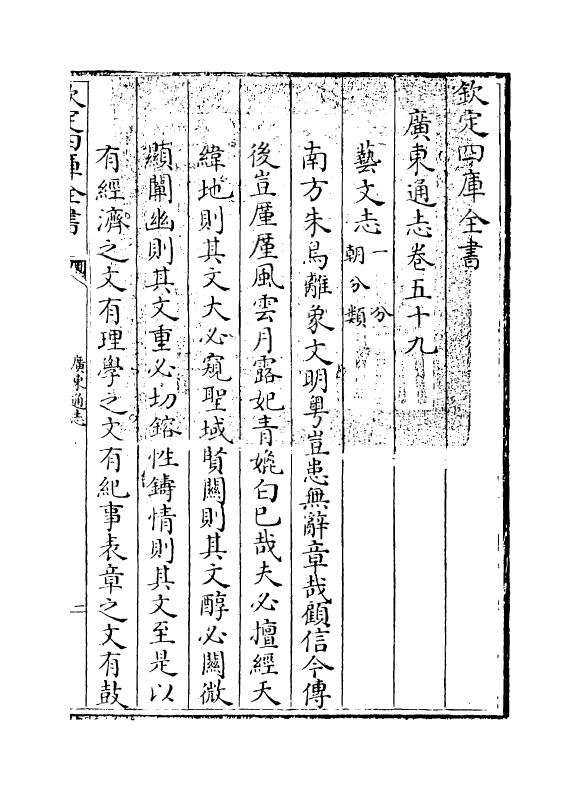 欽定四庫全書
廣東通志卷五十九
藝文志一 分朝分類
南方朱鳥離象文明粤豈患無辭章哉顧信今傳
後豈厪厪風雲月露妃青媲白已哉夫必擅經天
緯地則其文大必窺聖域賢關則其文醇必闡微
顯闡幽則其文重必切鎔性鑄情則其文至是以
有經濟之文有理學之文有紀事表章之文有鼓
欽定四庫全書
廣東通志
一